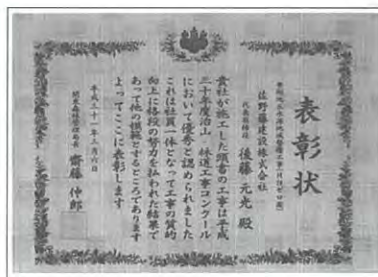 表彰状
佐野藤建設株式会社
代表取締役 後藤元光殿
貴社が施工した頭書の工事は平成
三十年度治山・林道工事コンクール
において優秀と認められました
これは社員一体となって工事の質的
向上に格段の努力を払われた結果で
あって他の模範とするところであります
よってここに表彰します
平成三十一年三月六日
関東森林管理局長 齋藤伸郎